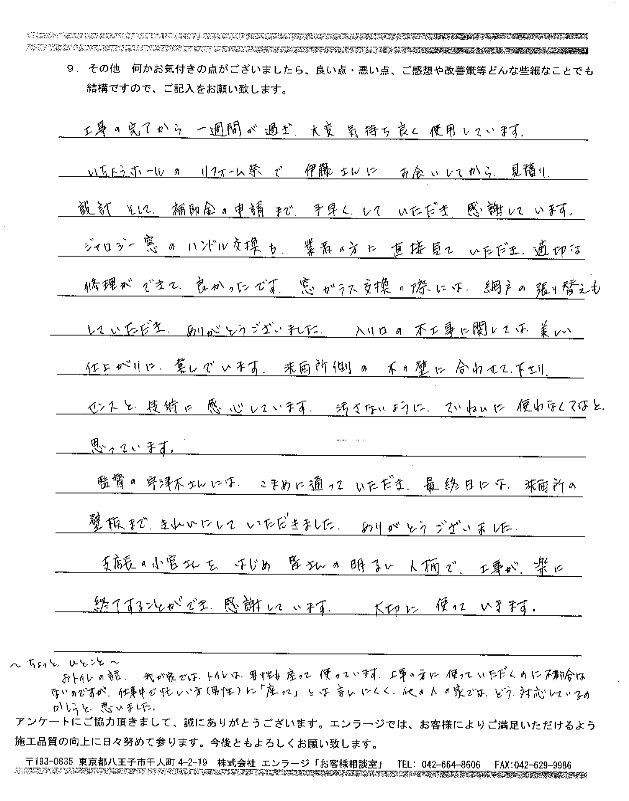 9. その他 何かお気付きの点がございましたら、良い点・悪い点、ご感想や改善策等どんな些細なことでも
結構ですので、ご記入をお願い致します。
工事の完了から 一週間が過ぎ、大変 気持ち良く 使用しています。
いちょうホールの リフォーム祭で 伊藤さんに お会いしてから、見積り、
設計 そして、補助金の申請まで、手早く して いただき、感謝しています。
ジャロジー窓の ハンドル交換も、業者の方に 直接見て いただき、適切な
修理が できて、良かったです。窓ガラス交換の際には、網戸の張り替えも
していただき、ありがとうございました。 入り口の 木工事に関しては、美しい
仕上がりに、喜んでいます。洗面所側の 木の壁に 合わせて下さり、
センスと 技術に 感心しています。 汚さないように、ていねいに 使わなくてはと、
思っています。
監督の 宇津木さんには、こまめに通って いただき、最終日には、洗面所の
壁板まで、きれいにして いただきました。ありがとうございました。
支店長の小宮さんを はじめ 皆さんの 明るい 人柄で、工事が、楽に
終了することができ、感謝しています。 大切に 使って いきます。
～ちょっと ひとこと～
おトイレの話。 我が家では、トイレは、男性も 座って 使っています。工事の方に 使っていただくのに不都合は
ないのですが、仕事中で忙しい方(男性)に「座って」とは 言いにくく、他の人の家では、どう対応しているの
かしらと 思いました。
アンケートにご協力頂きまして、誠にありがとうございます。エンラージでは、お客様によりご満足いただけるよう
施工品質の向上に日々努めて参ります。今後ともよろしくお願い致します。
〒193-0835 東京都八王子市千人町4-2-19 株式会社 エンラージ「お客様相談室」 TEL: 042-664-8606 FAX:042-629-9986